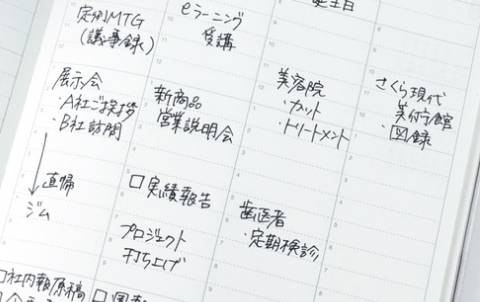 定例MTG
(議事録)
展示会
・A社ご挨拶
・B社訪問
直帰
ジム
□社内報原稿
eラーニング
受講
新商品
営業説明会
□実績報告
プロジェクト
打ち上げ
誕生日
美容院
・カット
・トリートメント
歯医者
・定期検診
さくら現代
美術館
・図録